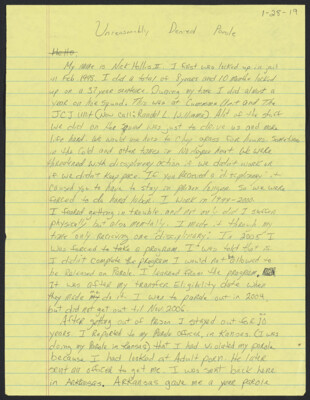 1-28-19
Unreasonably Denied Parole
Hello
My name is Nick Hollis II. I first was locked up in jail
in Feb 1998. I did a total of 8 years and 10 months locked
up on a 37 year sentence. During my time I did about a
year on hoe squad. This was at Cummins Unit and The
JCJ Unit (now call: Randall L. Williams). Alot of the stuff
we did on hoe squad was just to abuse us and make
life hard. We would use hoes to chop grass for hours. Sometimes
in the cold and other times in 100 degree heat. We were
threatened with disciplinary action if we didn't work or
if we didn't keep pace. If you received a disciplinary it
caused you to have to stay in prison longer. So we were
forced to do hard labor. I work in 1999-2000.
I feared getting in trouble and not only did I suffer
physically but also mentally. I made it through my
time only receiving one disciplinary. In 2005 I
was forced to take a program. I was told that if
I didn't complete the program I would not be allowed to
be released on Parole. I learned from the program,
it was after my transfer eligibility date when
they made me do it. I was to parole out in 2004,
but did not get out til Nov 2006.
After getting out of Prison I stayed out for 10
years. I reported to my Parole officer, in Kansas (I was
doing my Parole in Kansas) that I had violated my parole
because I had looked at Adult porn. He later
sent an officer to get me. I was sent back here
in Arkansas. Arkansas gave me a year parole